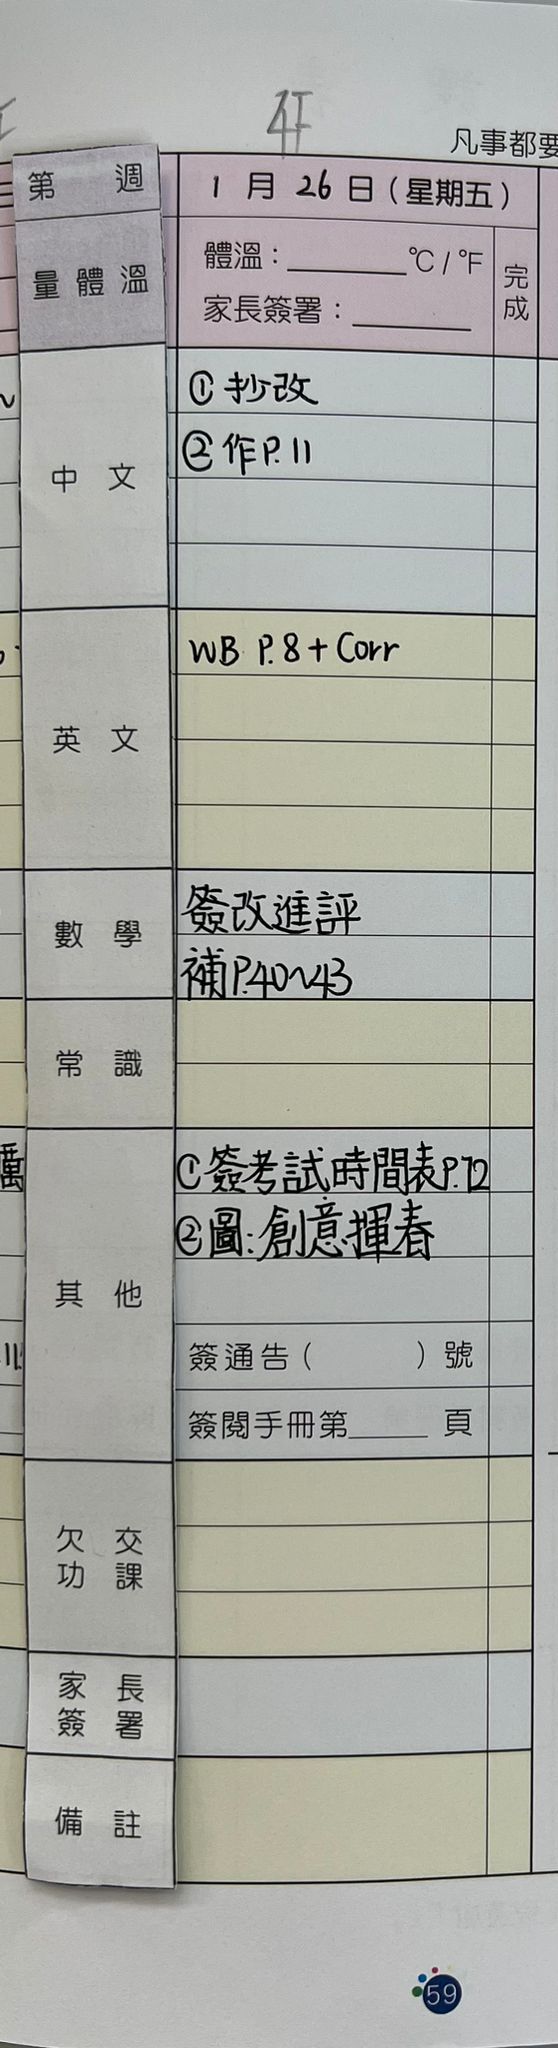 4F
凡事都要
第 週
1 月 26 日 ( 星期五 )
量 體 溫
體溫：________ ℃ / ℉
家長簽署：________
完成
中 文
① 抄改
② 作P.11
英 文
WB P.8 + Corr
數 學
簽改進評
補P.40~43
常 識
其 他
① 簽考試時間表P.72
② 圖：創意揮春
簽通告 (　　　) 號
簽閱手冊第_____ 頁
欠 交
功 課
家 長
簽 署
備 註
59